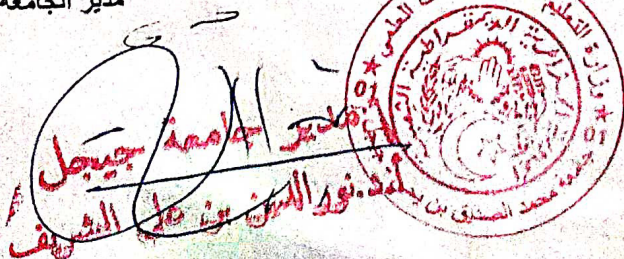 مدير الجامعة
مدير جامعة جيجل
أ.د. نور الدين بن علي الشريف
وزارة التعليم
العلمي
الجزائرية الديمقراطية الشعبية
جامعة محمد الصديق بن
01
01